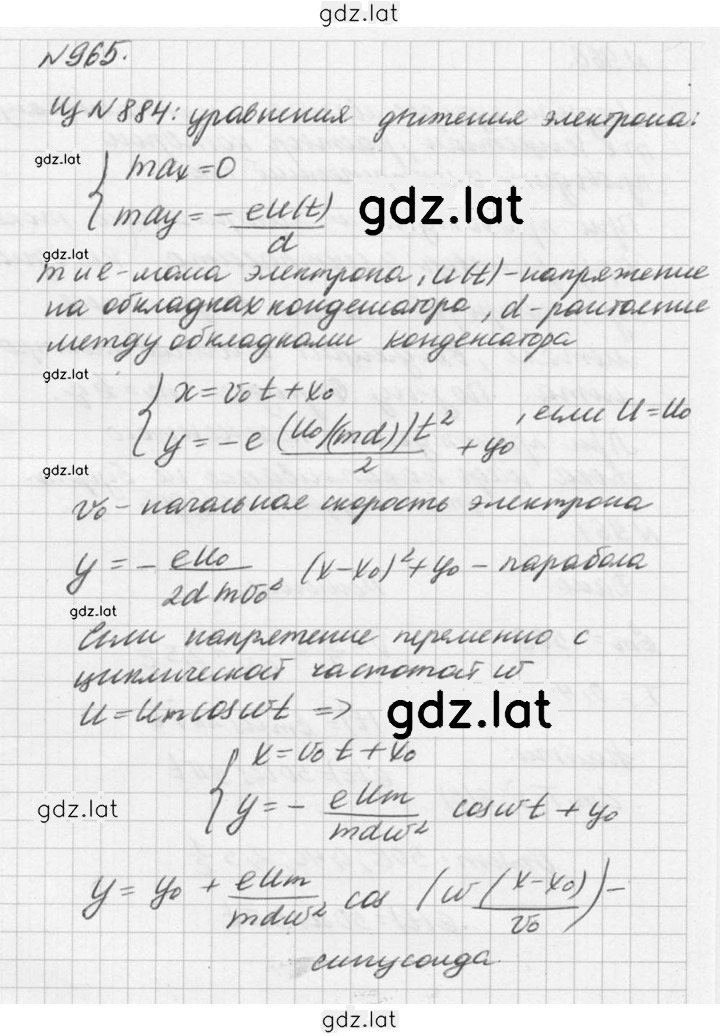 gdz.lat
№965.
Из №884: уравнения движения электрона:
gdz.lat
{ max = 0
{ may = - eU(t)/d
gdz.lat
m и e - масса электрона, U(t) - напряжение
на обкладках конденсатора, d - расстояние
между обкладками конденсатора
gdz.lat
{ x = v₀t + x₀
{ y = - e (U₀)(md))t²/2 + y₀, если U = U₀
gdz.lat
v₀ - начальная скорость электрона
y = - eU₀/2dmv₀² (x-x₀)² + y₀ - парабола
gdz.lat
Если напряжение переменно с
циклической частотой w
U = Um cos wt =>
gdz.lat
{ x = v₀t + x₀
{ y = - eUm/mdw² cos wt + y₀
gdz.lat
y = y₀ + eUm/mdw² cos (w (x-x₀)/v₀) -
синусоида.
gdz.lat